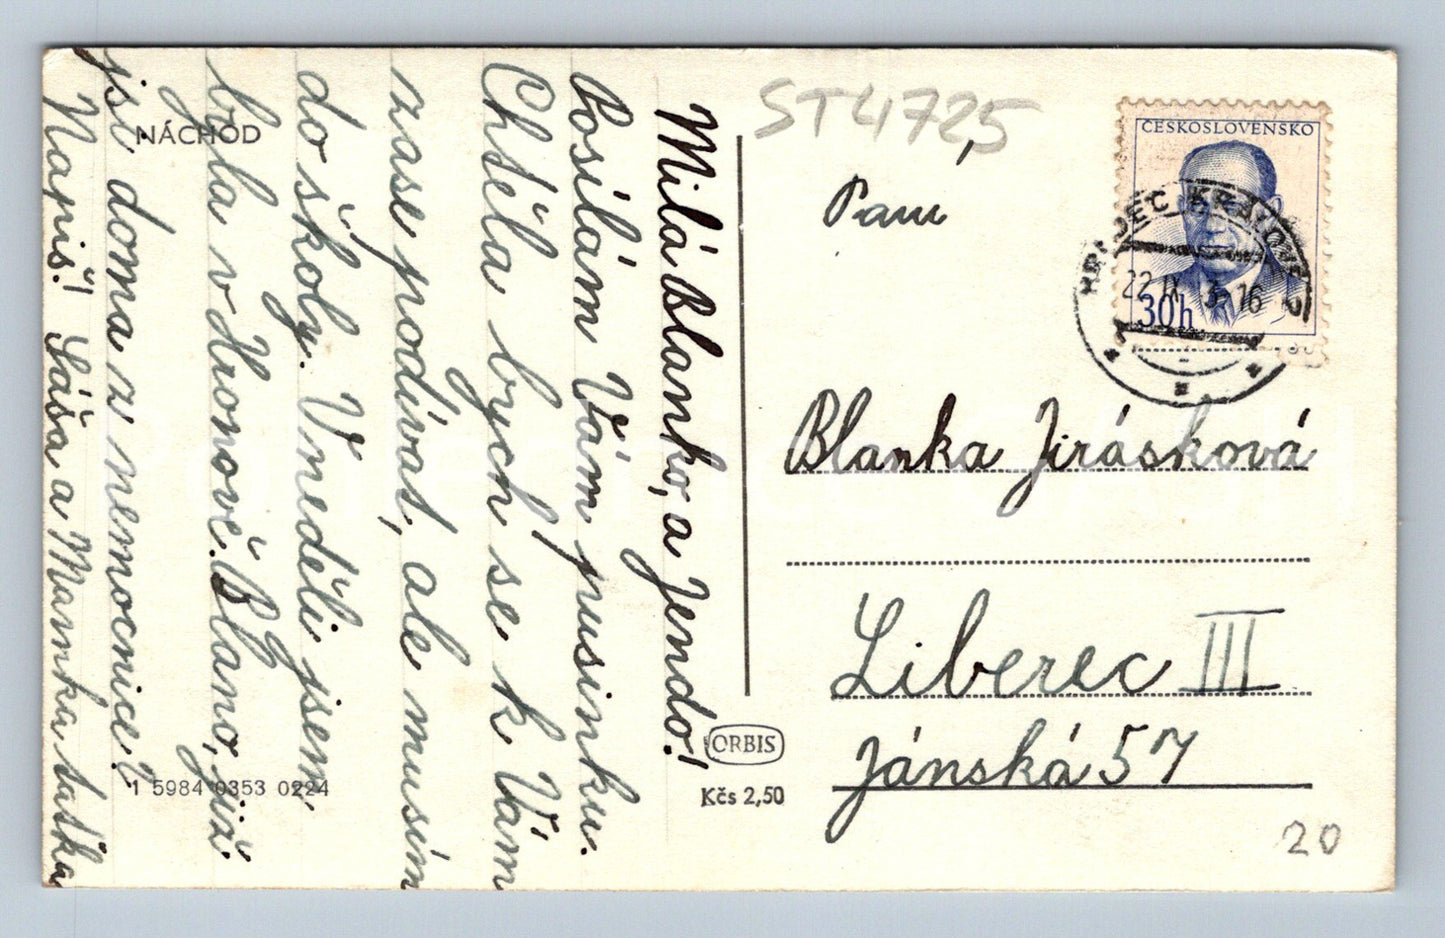 Milá Blanko, a Jendo!
Posílám Vám pusinku.
Chtěla bych se k Vám
zase podívat, ale musím
do školy. V neděli jsem
byla v Hronově. Blano, již
jsi doma z nemocnice?
Napiš! Sáša a Mamka taťka
NÁCHOD
1 5984 0353 0224
ORBIS
Kčs 2,50
ST4725
ČESKOSLOVENSKO
30h
HRADEC KRÁLOVÉ 2
22 IX 16
Paní
Blanka Jirásková
Liberec III
Jánská 57
20